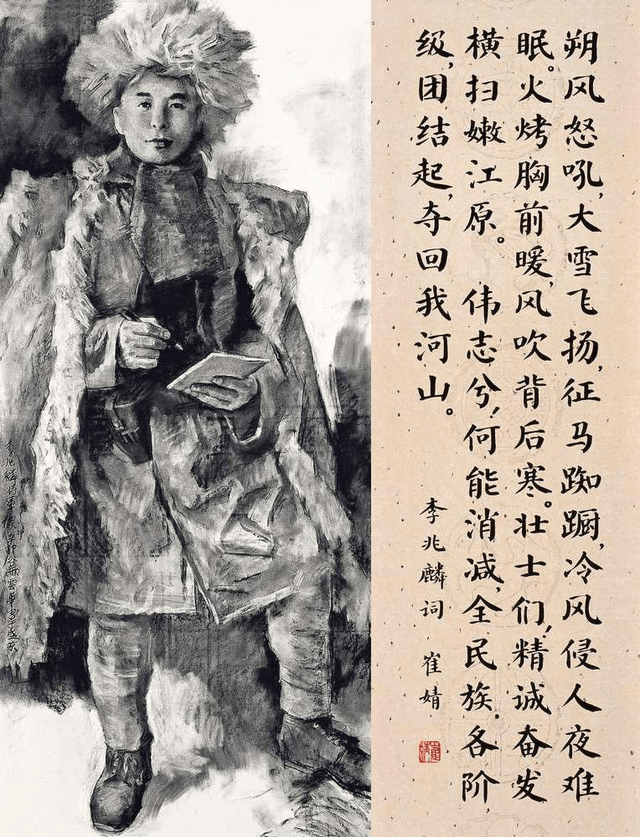 朔风怒吼，大雪飞扬，征马踟蹰，冷风侵人夜难
眠。火烤胸前暖，风吹背后寒。壮士们，精诚奋发
横扫嫩江原。 伟志兮，何能消减，全民族，各阶
级，团结起，夺回我河山。
李兆麟词 崔婧